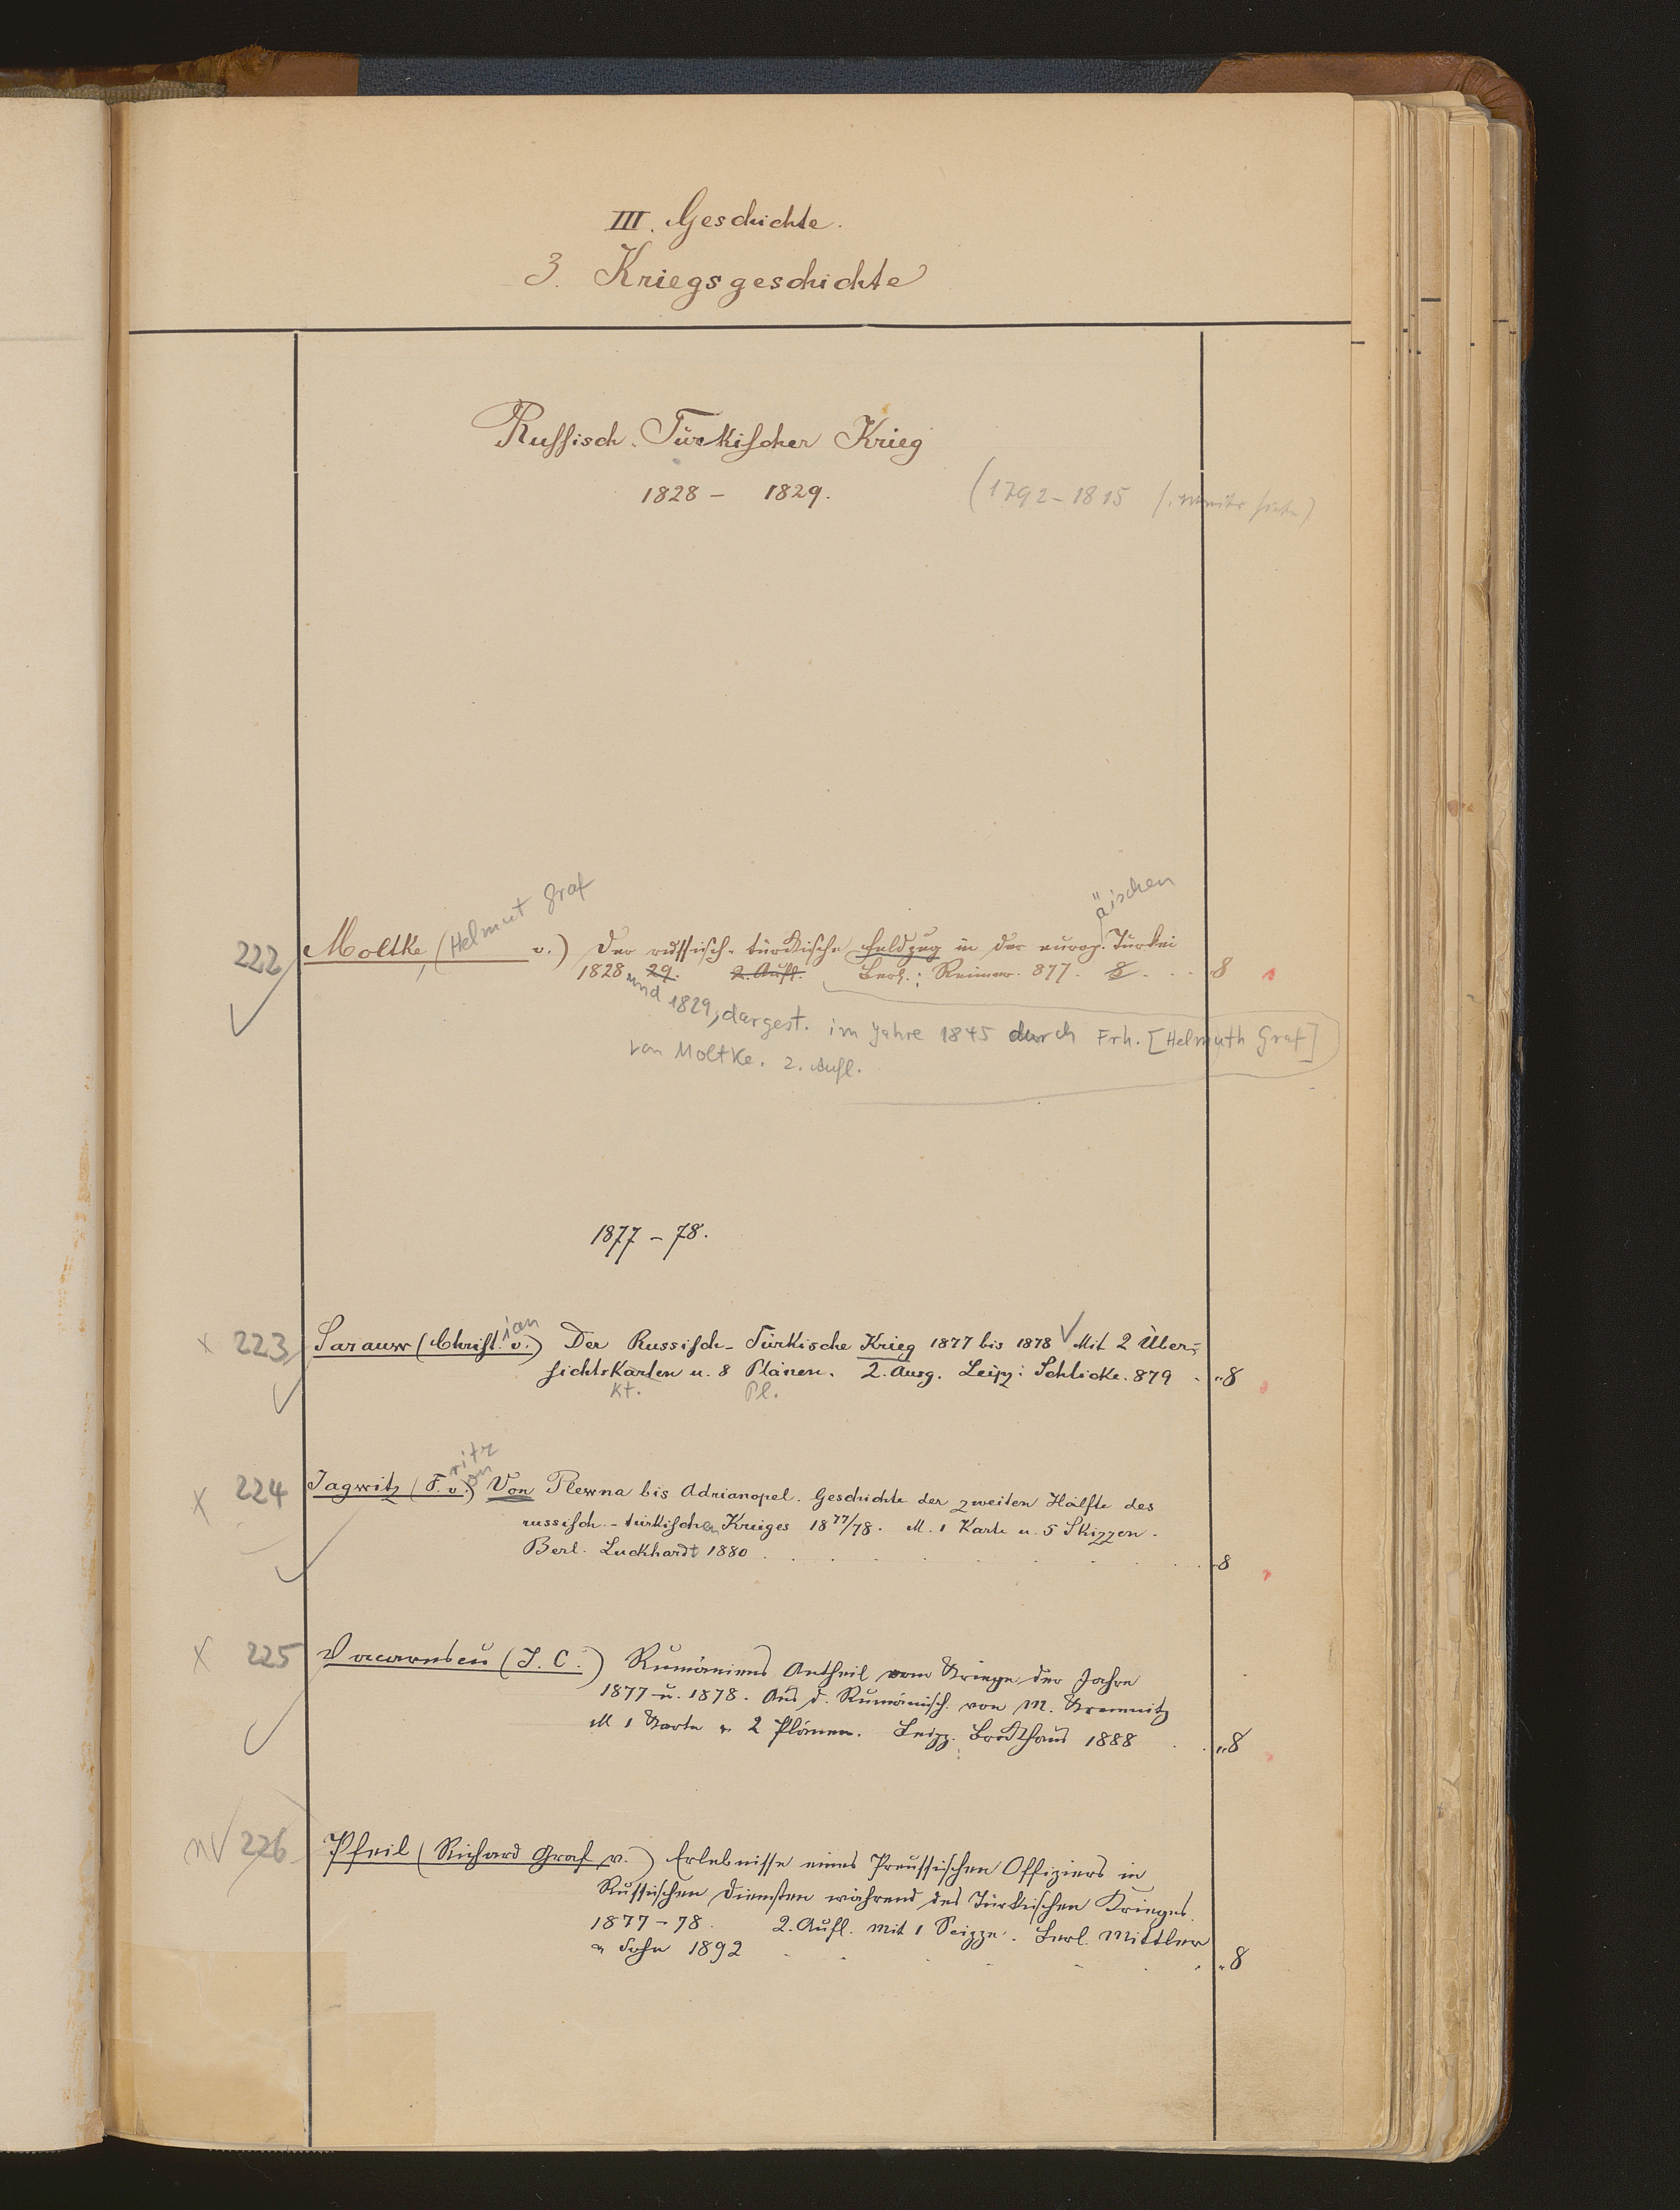 III. Geschichte.
3. Kriegsgeschichte
Russisch-Türkischer Krieg
1828 - 1829.
(1792-1815
222 Moltke, (Helmut Graf v.) Der russisch-türkische Feldzug in der europ.äischen Türkei
1828 und 29. 2. Aufl. Berl.: Reimer. 877. 8 . . . 8
1829, dargest. im Jahre 1845 durch Frh. [Helmuth Graf]
von Moltke. 2. Aufl.
1877 - 78.
x 223 Sarauw (Christ.ian v.) Der Russisch-Türkische Krieg 1877 bis 1878 Mit 2 Über-
sichtskarten u. 8 Plänen. 2. Ausg. Leipz: Schlicke. 879 . „8
Kt. Pl.
x 224 Jagwitz (F.ritz v.on) Von Plewna bis Adrianopel. Geschichte der zweiten Hälfte des
russisch-türkischen Krieges 18 77/78. M. 1 Karte u. 5 Skizzen.
Berl. Luckhardt 1880 . . . „8
x 225 Vacarescu (T. C.) Rumäniens Antheil am Kriege der Jahre
1877 u. 1878. Aus d. Rumänisch. von M. Kremnitz
M 1 Karte u 2 Plänen. Leipz. Brockhaus 1888 . . „8
nv 226 Pfeil (Richard Graf v.) Erlebnisse eines Preussischen Offiziers in
Russischen Diensten während des Türkischen Krieges.
1877-78. 2. Aufl. Mit 1 Scizze. Berl. Mittler
u Sohn 1892 . . . „8